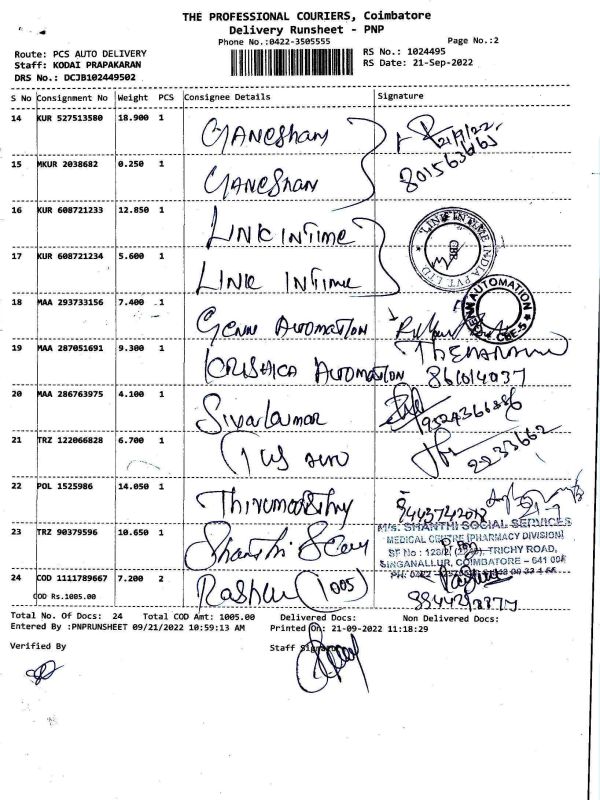 THE PROFESSIONAL COURIERS, Coimbatore
Delivery Runsheet - PNP
Phone No.:0422-3505555
Page No.:2
Route: PCS AUTO DELIVERY
RS No.: 1024495
Staff: KODAI PRAPAKARAN
RS Date: 21-Sep-2022
DRS No.: DCJB102449502
S No Consignment No Weight PCS Consignee Details Signature
14 KUR 527513580 18.900 1 GANESHAN 21/9/22
15 MKUR 2038682 0.250 1 GANESHAN
16 KUR 608721233 12.850 1 LINK INTIME
LINK INTIME INDIA PVT. LTD CBE
17 KUR 608721234 5.600 1 LINK INTIME
18 MAA 293733156 7.400 1 GENN AUTOMATION
GENN AUTOMATION CBE-5
19 MAA 287051691 9.300 1 AUTOMATION
20 MAA 286763975 4.100 1 Sivakumar
21 TRZ 122066828 6.700 1
2233662
22 POL 1525986 14.050 1
23 TRZ 90379596 10.650 1 Shanthi
M/s. SHANTHI SOCIAL SERVICES
MEDICAL CENTRE (PHARMACY DIVISION)
TRICHY ROAD,
SINGANALLUR, COIMBATORE - 641 004
24 COD 1111789667 7.200 2 (1005)
COD Rs.1005.00
Total No. Of Docs: 24 Total COD Amt: 1005.00 Delivered Docs: Non Delivered Docs:
Entered By :PNPRUNSHEET 09/21/2022 10:59:13 AM Printed On: 21-09-2022 11:18:29
Verified By Staff Signature